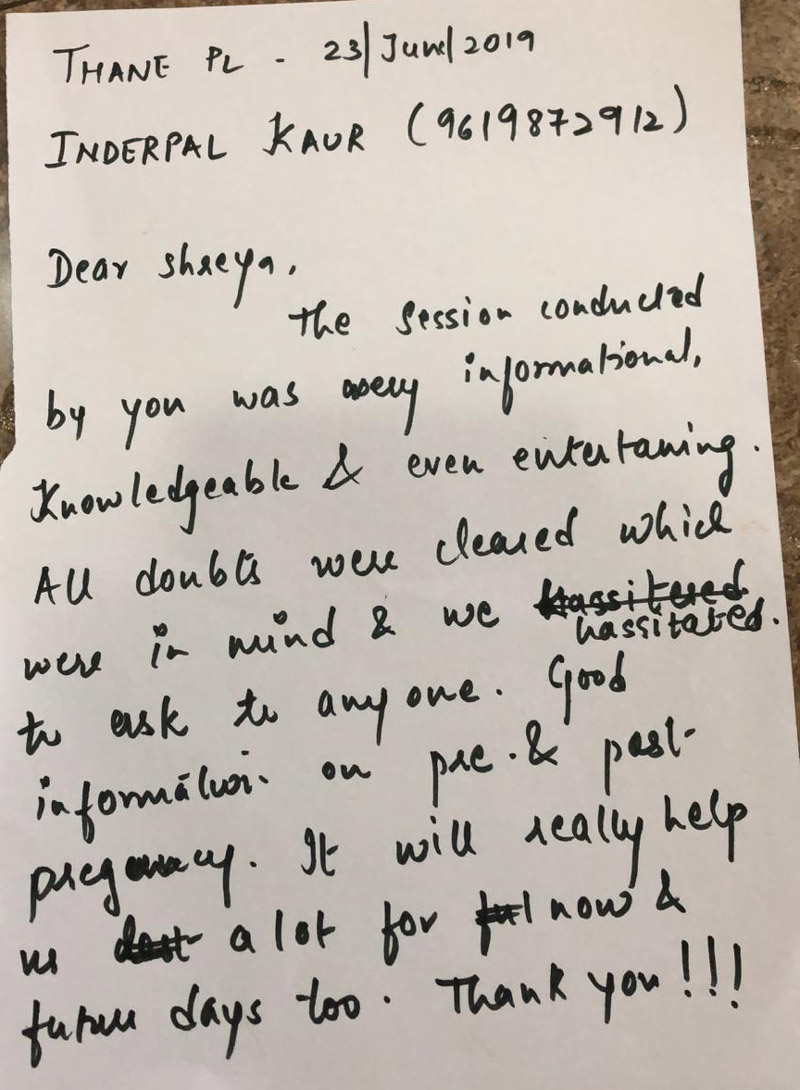 THANE PL - 23/June/2019
INDERPAL KAUR (9619872912)
Dear Shreya,
The session conducted
by you was very informational,
Knowledgeable & even entertaning.
All doubts were cleared which
were in mind & we hassitered
hassitated.
to ask to any one. Good
information on pre & post
pregnancy. It will really help
us a lot for now &
future days too. Thank you!!!